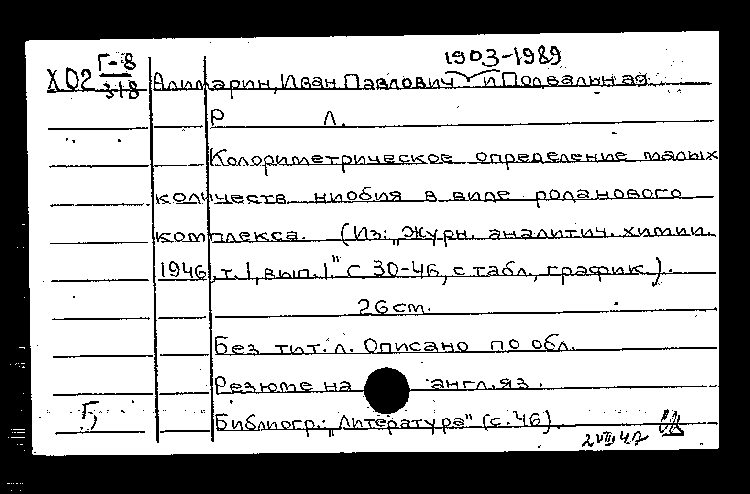 1903-1989
Х02 Г-8/318 Алимарин, Иван Павлович и Подвальная
Р Л.
Колориметрическое определение малых
количеств ниобия в виде роданового
комплекса. (Из: „Журн. аналитич. химии.
1946, т. 1, вып. 1" с 30-46, с табл., график.).
26 cm.
Без тит. л. Описано по обл.
Резюме на англ. яз.
Б Библиогр.: „Литература" (с. 46).
2 VIII 47